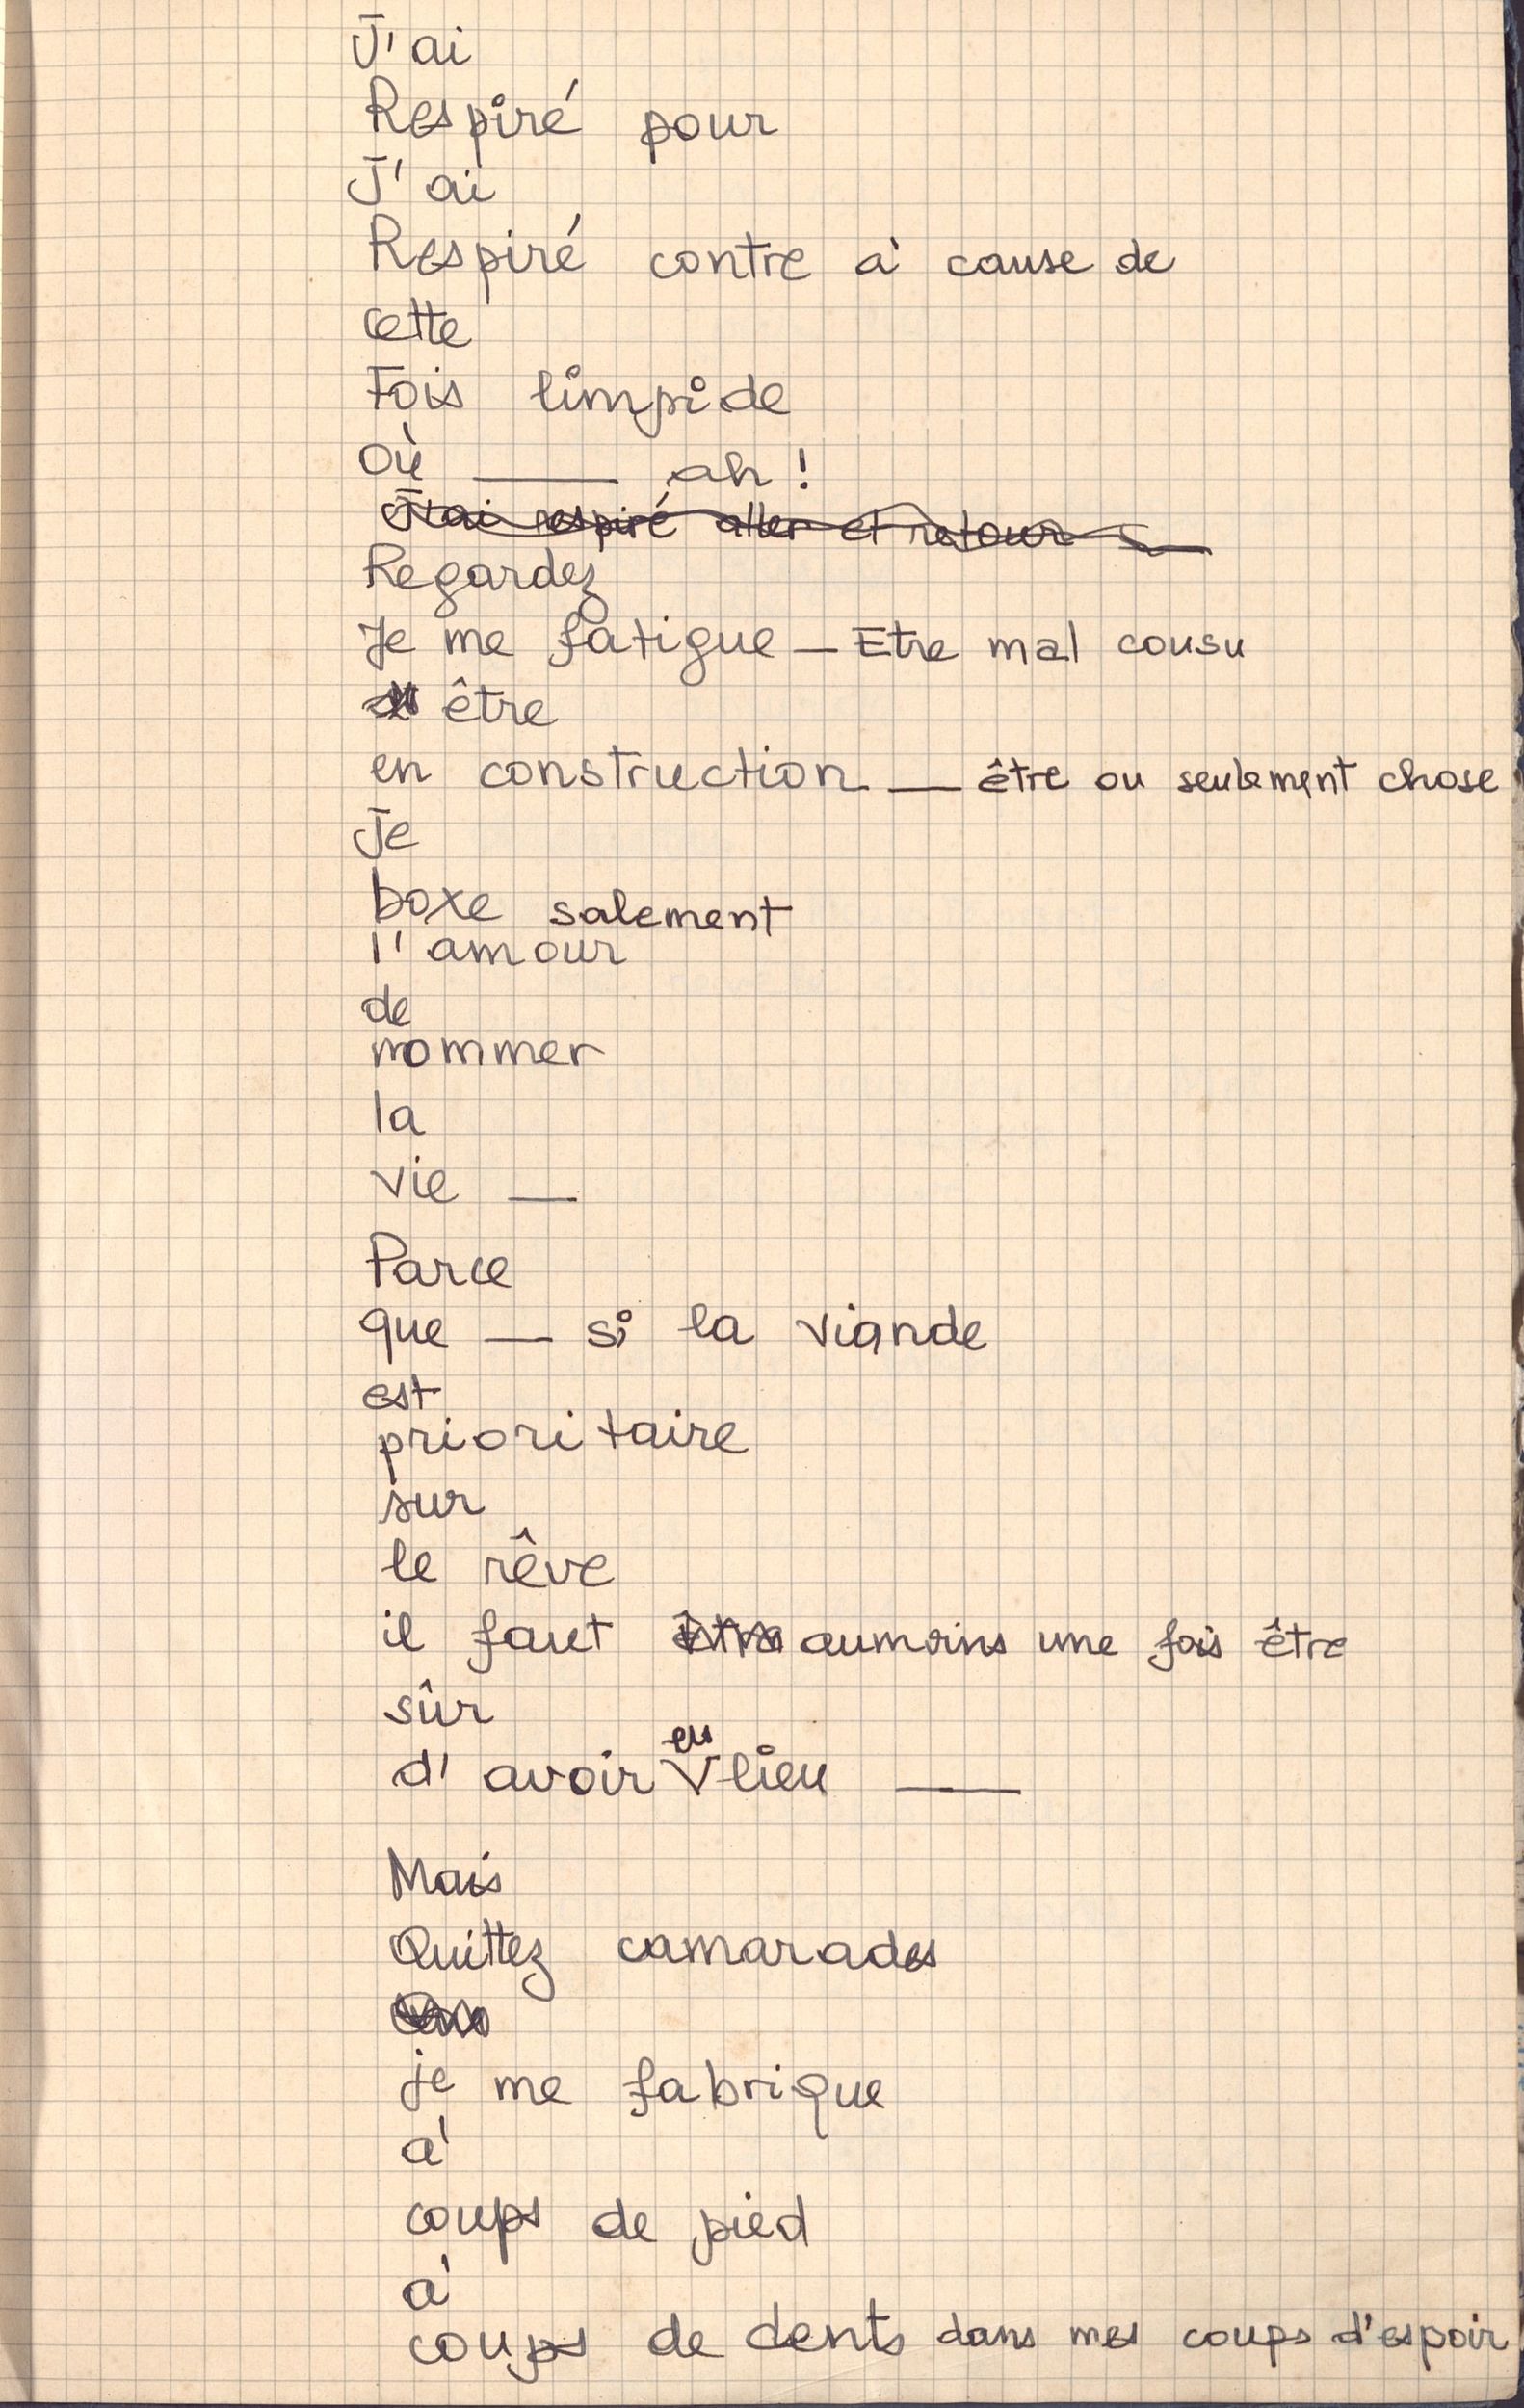 J'ai
Respiré pour
J'ai
Respiré contre à cause de
cette
Fois limpide
où ___ ah !
J'ai respiré aller et retour
Regardez
Je me fatigue — Etre mal cousu
être
en construction — être ou seulement chose
Je
boxe salement
l'amour
de
nommer
la
vie —
Parce
que — si la viande
est
prioritaire
sur
le rêve
il faut être aumoins une fois être
sûr
d'avoir eu lieu ___
Mais
Quittez camarades
je me fabrique
à
coups de pied
à
coups de dents dans mes coups d'espoir